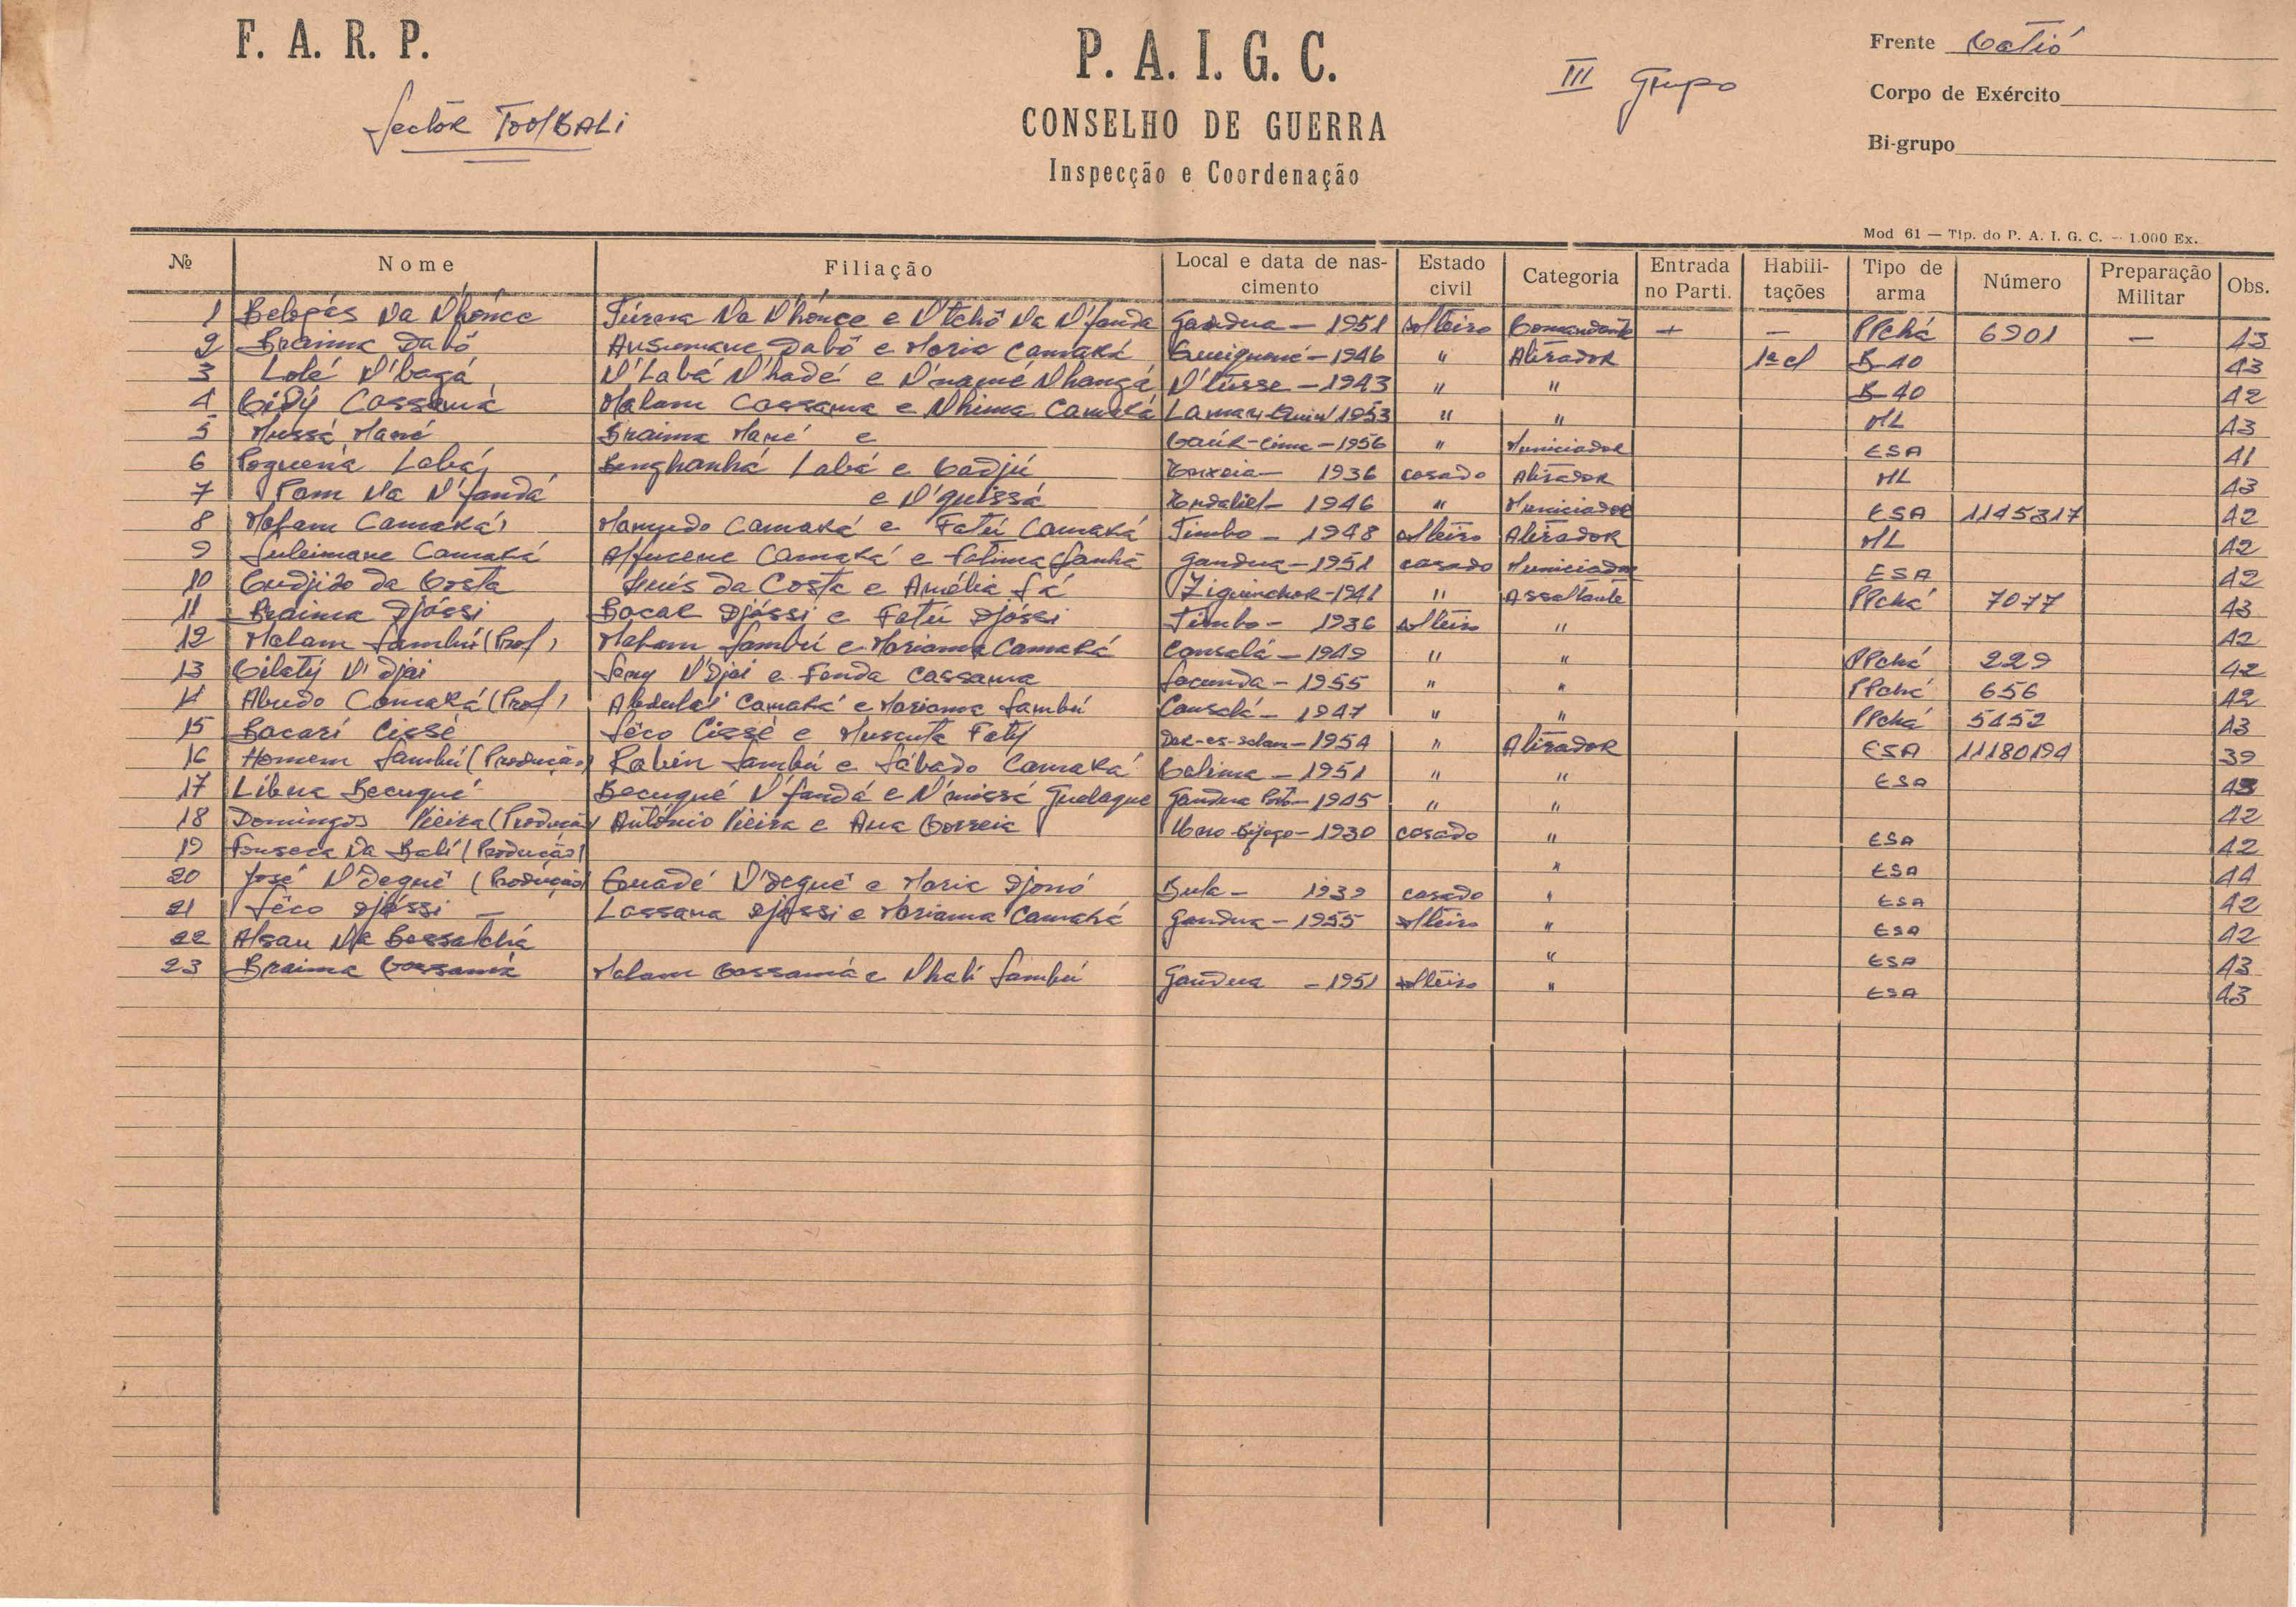 F. A. R. P.
P. A. I. G. C.
CONSELHO DE GUERRA
Inspecção e Coordenação
Sectôr Toolbali
III Grupo
Frente Catió
Corpo de Exército
Bi-grupo
Mod 61 — Tip. do P. A. I. G. C. — 1.000 Ex.
№ Nome Filiação Local e data de nas- cimento Estado civil Categoria Entrada no Parti. Habili- tações Tipo de arma Número Preparação Militar Obs.
1 Na N'hónce Na N'hónce e N'tchô Na N'fanda Gandua — 1951 solteiro Comandante + — PPchá 6901 — 43
2 Braima Dabó Ansumane Dabó e Maria Camará 1946 " Atirador 1ª cl B-40 43
3 Lolé N'bagá N'Labá N'hadé e N'namé Nhangá N'tusse — 1943 " " B-40 42
4 Cidý Cassamá Malam Cassama e Nhima Camará 1953 " " ML 43
5 Mussá Mané Braima Mané e 1956 " Municiador ESA 41
6 Poquena Labá Benghanhá Labá e Cadjú 1936 casado Atirador ML 43
7 Pam Na N'fandá e N'quissá 1946 " Municiador ESA 1145317 42
8 Malam Camará Mamudo Camará e Fatú Camará Timbo — 1948 solteiro Atirador ML 42
9 Suleimane Camará Alfucene Camará e Fatima Sanhá Gandua — 1951 casado Municiador ESA 42
10 Cudjido da Costa Luís da Costa e Amélia Sá Ziguinchor - 1941 " Assaltante PPchá 7077 43
11 Braima Djóssi Bacar Djóssi e Fatú Djóssi Timbo — 1936 solteiro " 42
12 Malam Sambú (Prof) Malam Sambú e Mariama Camará Cansalá — 1949 " " PPchá 229 42
13 Cilatý N'djai Seny N'djai e Fanda Cassama Sacunda — 1955 " " PPchá 656 42
14 Abudo Camará (Prof) Abdulai Camará e Mariama Sambú Cansalá — 1947 " " PPchá 5452 43
15 Bacari Cissé Sêco Cissé e Muscuta Fatý Dar-es-salam — 1954 " Atirador ESA 11180194 39
16 Homem Sambú (Produção) Rabin Sambú e Sábado Camará Calima — 1951 " " ESA 43
17 Libna Becuqué Becuqué N'fandá e N'missá Guelaque Gandua Porto — 1945 " " 42
18 Domingos Vieira (Produção) António Vieira e Ana Correia 1930 casado " ESA 42
19 Fonseca Na Balí (Produção) " ESA 44
20 José N'dequê (Produção) Couadé N'dequê e Maria Djonó Bula — 1939 casado " ESA 42
21 Sêco Djóssi — Lassana Djassi e Mariama Camará Gandua — 1955 solteiro " ESA 42
22 Alsau Na Bessatchá " ESA 43
23 Braima Cassamá Malam Cassamá e Nhalí Sambú Gandua — 1951 solteiro " ESA 43